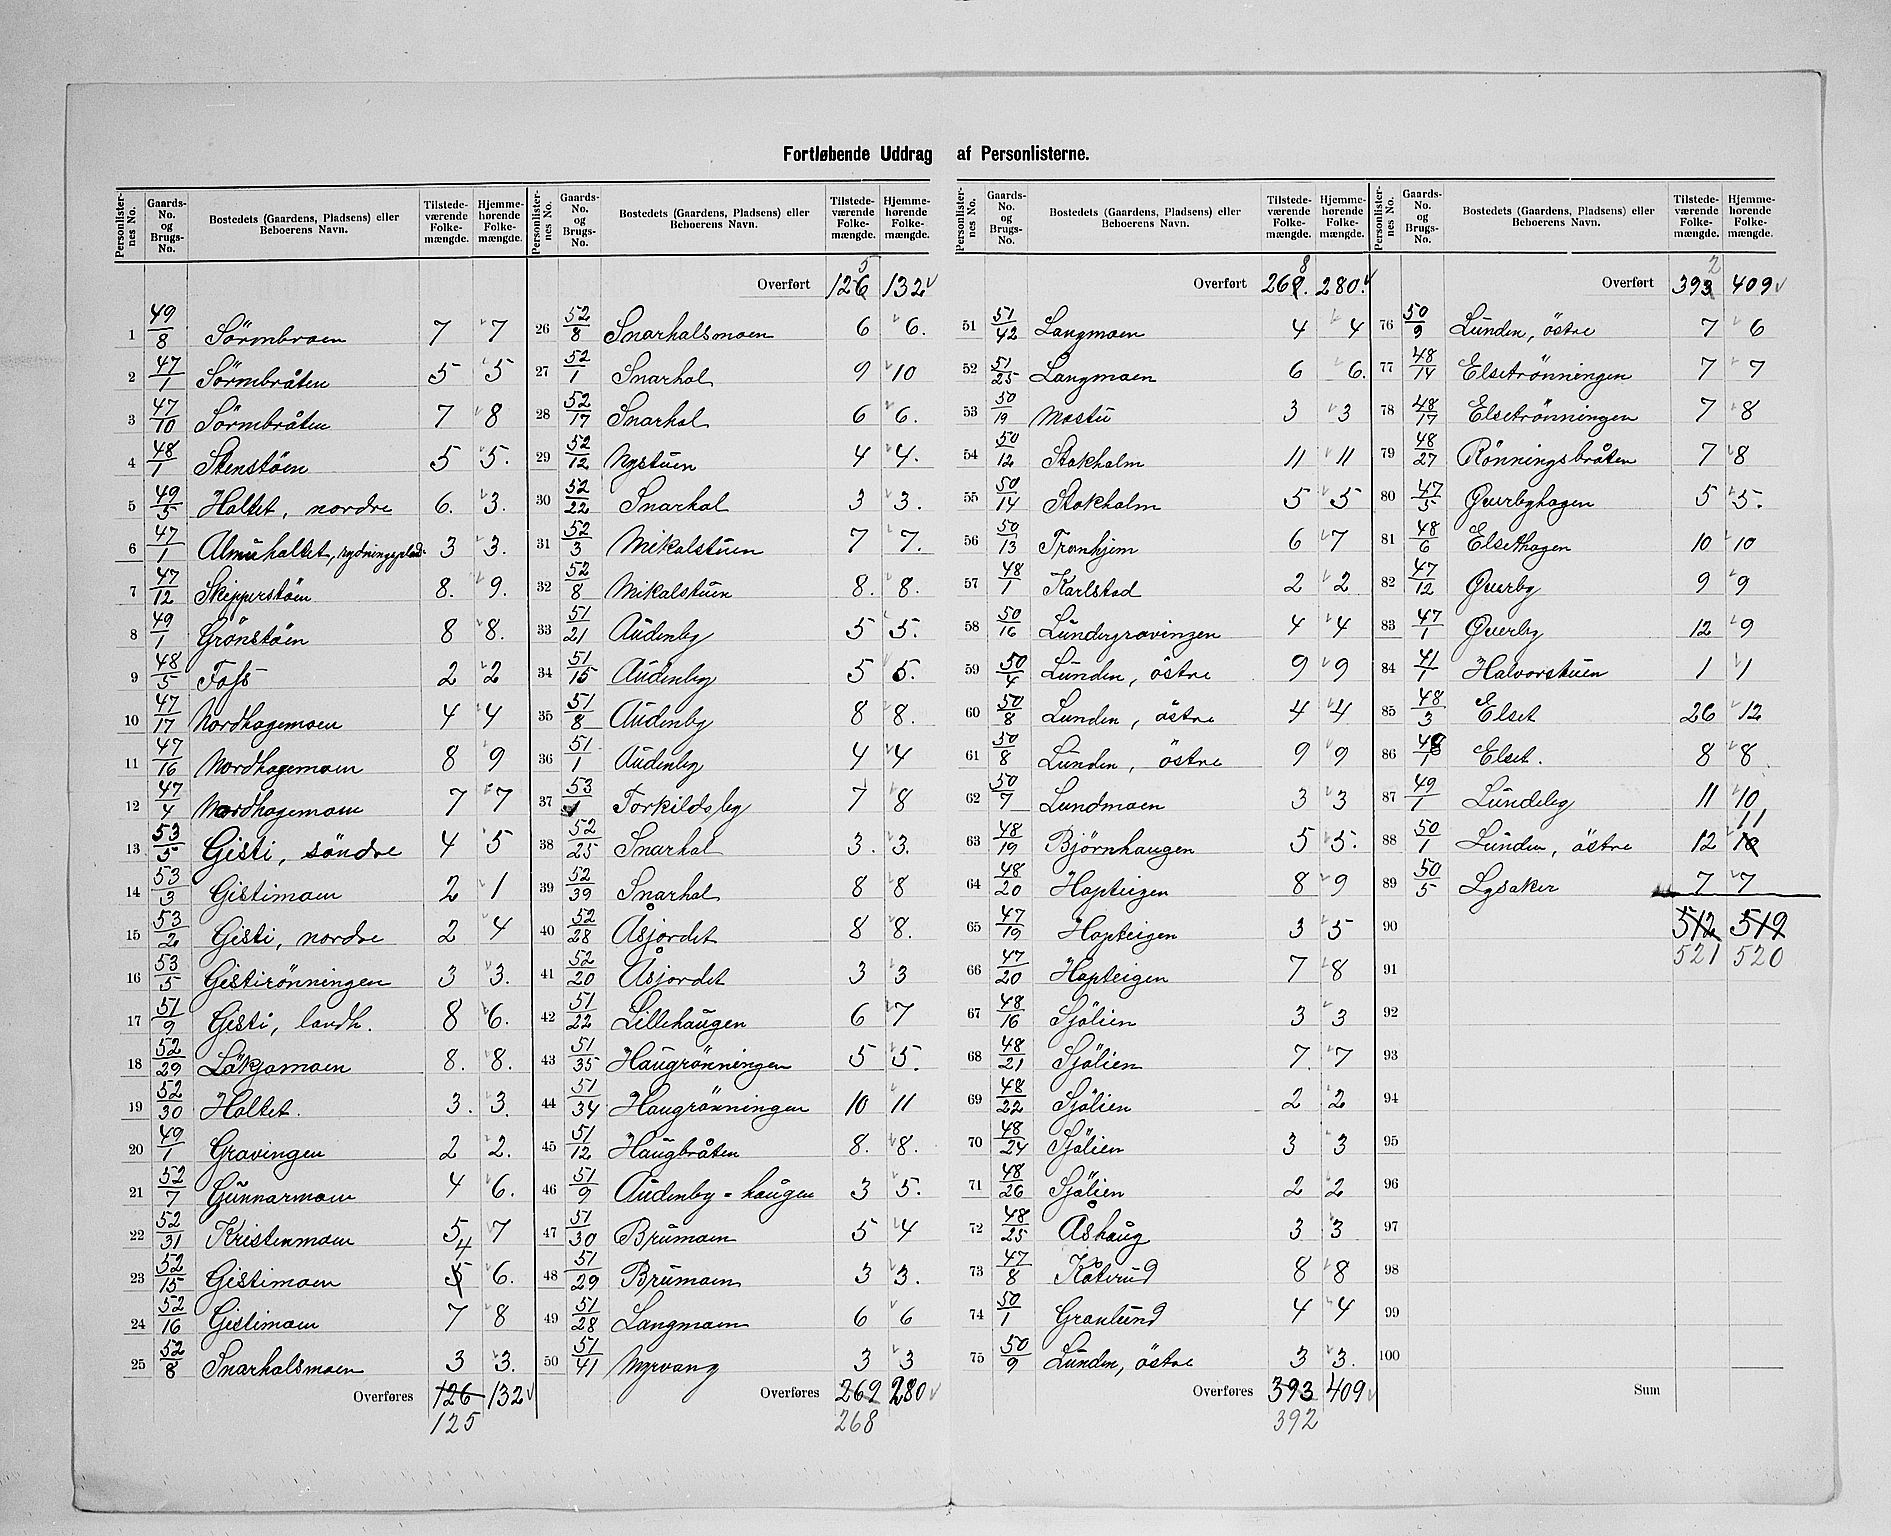 Fortløbende Uddrag af Personlisterne.
Personlisternes No. | Gaards-No. og Brugs-No. | Bostedets (Gaardens, Pladsens) eller Beboerens Navn. | Tilstedeværende Folkemængde. | Hjemmehørende Folkemængde.
1 49/8 Sörmbroen 7 7
2 47/1 Sörmbråten 5 5
3 47/10 Sörmbråten 7 8
4 48/1 Stenstöen 5 5.
5 49/5 Holtet, nordre 6. 3.
6 47/1 Almuhaltet, rydningsplad. 3 3.
7 47/12 Skipperstöen 8. 9.
8 49/1 Grönstöen 8 8.
9 48/5 Fofs 2 2
10 47/17 Nordhagemoen 4 4
11 47/16 Nordhagemoen 8 9
12 47/4 Nordhagemoen 7 7
13 53/5 Gisti, söndre 4 5
14 53/3 Gistimoen 2 1
15 53/2 Gisti, nordre 2 4
16 53/5 Gistirönningen 3 3.
17 51/9 Gisti, landh. 8 6.
18 52/29 Läkjamoen 8. 8.
19 52/30 Holtet. 3. 3.
20 49/1 Gravingen 2 2.
21 52/7 Gunnarmoen 4 6.
22 52/31 Kristenmoen 5 7
23 52/15 Gistimoen 5 4 6.
24 52/16 Gistimoen 7 8
25 52/8 Snarholsmoen 3 3.
Overføres 126 132
125
Personlisternes No. | Gaards-No. og Brugs-No. | Bostedets (Gaardens, Pladsens) eller Beboerens Navn. | Tilstedeværende Folkemængde. | Hjemmehørende Folkemængde.
5
Overført 126 132
26 52/8 Snarholsmoen 6 6.
27 52/1 Snarhol 9 10
28 52/17 Snarhol 6 6.
29 52/12 Nystuen 4 4.
30 52/22 Snarhol 3 3.
31 52/3 Mikalstuen 7 7.
32 52/8 Mikalstuen 8. 8.
33 51/21 Audenby 5 5.
34 51/15 Audenby 5 5.
35 51/8 Audenby 8 8.
36 51/1 Audenby 4 4
37 53/1 Torkildsby 7 8
38 52/25 Snarhol 3. 3.
39 52/39 Snarhol 8 8
40 52/28 Åsjordet 8 8.
41 52/20 Åsjordet 3 3
42 51/22 Lillehaugen 6 7
43 51/35 Haugrönningen 5 5.
44 51/34 Haugrönningen 10 11
45 51/12 Haugbråten 8. 8.
46 51/9 Audenby=haugen 3 5.
47 51/30 Brumoen 5 4
48 51/29 Brumoen 3 3.
49 51/28 Langmoen 6 6
50 51/41 Myrvang 3 3
Overføres 269 280
268
Personlisternes No. | Gaards-No. og Brugs-No. | Bostedets (Gaardens, Pladsens) eller Beboerens Navn. | Tilstedeværende Folkemængde. | Hjemmehørende Folkemængde.
8
Overført 269. 280.
51 51/42 Langmoen 4 4
52 51/25 Langmoen 6 6.
53 50/19 Mostu 3 3
54 50/12 Stokholm 11 11
55 50/14 Stokholm 5 5
56 50/13 Tronhjem 6 7
57 48/1 Karlstad 2 2
58 50/16 Lundegravingen 4 4
59 50/4 Lunden, östre 9 9
60 50/8 Lunden, östre 4 4
61 50/8 Lunden, östre 9 9
62 50/7 Lundmoen 3 3
63 48/19 Björnhaugen 5 5.
64 48/20 Hopteigen 8 9
65 47/19 Hopteigen 3 5
66 47/20 Hopteigen 7 8
67 48/16 Sjölien 3 3
68 48/21 Sjölien 7. 7
69 48/22 Sjölien 2 2
70 48/24 Sjölien 3 3
71 48/26 Sjölien 2 2
72 48/25 Åshaug 3 3
73 47/8 Kåterud 8 8
74 50/1 Granlund 4 4
75 50/9 Lunden, östre 3 3.
Overføres 393 409
392
Personlisternes No. | Gaards-No. og Brugs-No. | Bostedets (Gaardens, Pladsens) eller Beboerens Navn. | Tilstedeværende Folkemængde. | Hjemmehørende Folkemængde.
2
Overført 393 409
76 50/9 Lunden, östre 7 6
77 48/14 Elsetrönningen 7 7
78 48/17 Elsetrönningen 7 8
79 48/27 Rönningsbråten 7 8
80 47/5 Øverbyhagen 5 5.
81 48/6 Elsethagen 10 10
82 47/12 Øverby 9 9
83 47/1 Øverby 12 9
84 41/1 Halvorstuen 1 1
85 48/3 Elset 26 12
86 48/1 Elset. 8 8.
87 49/1 Lundeby 11 10
88 50/1 Lunden, östre 12 10 11
89 50/5 Lysaker 7 7
90 512 519
521 520
91
92
93
94
95
96
97
98
99
100
Sum